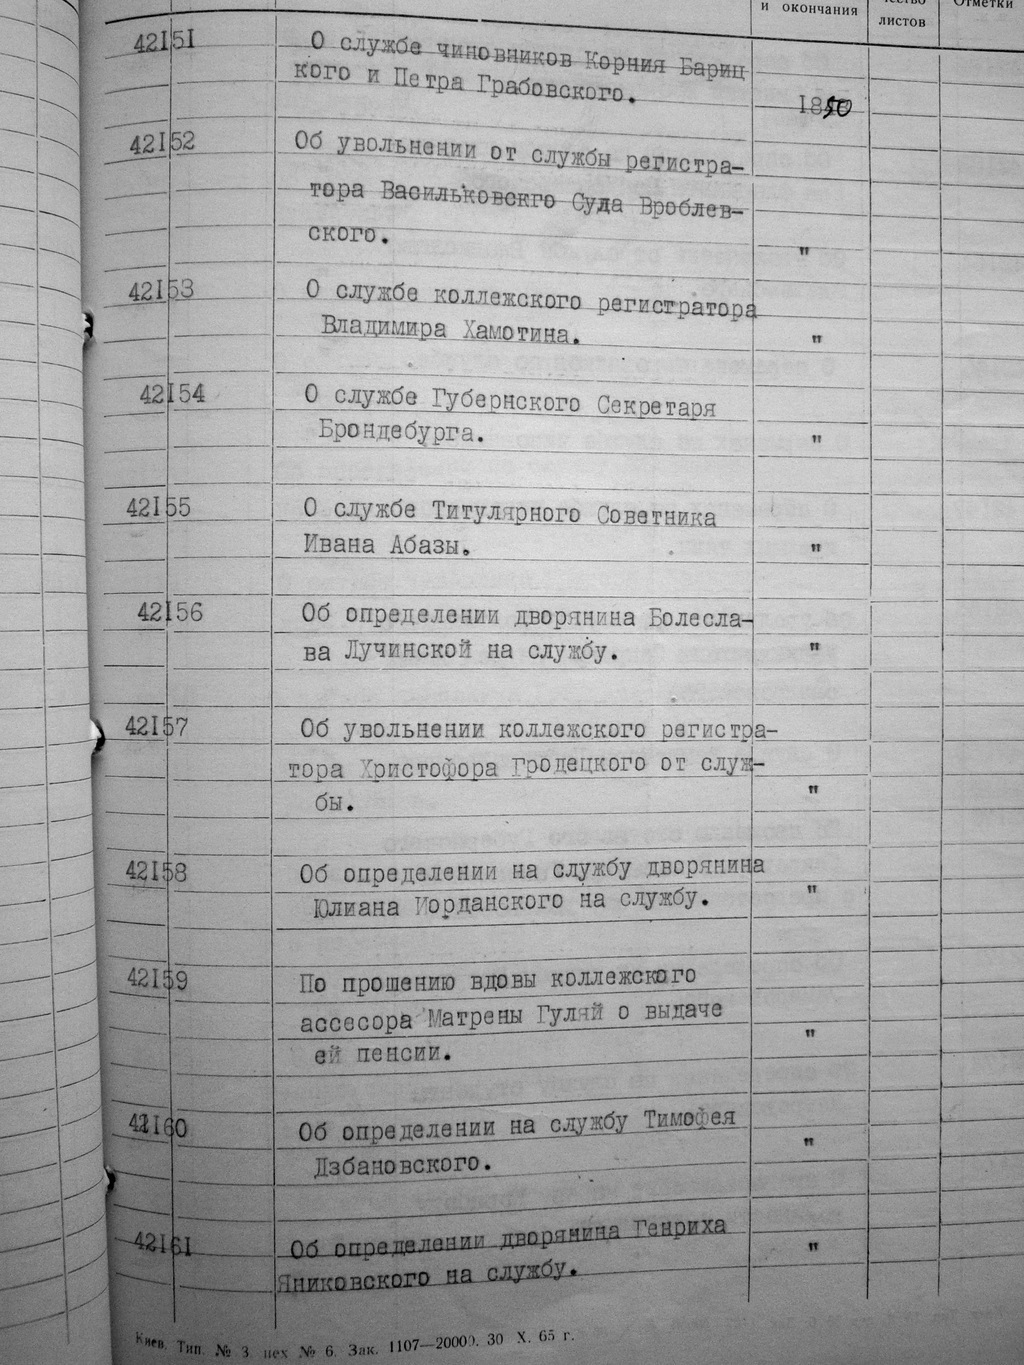 и окончания
листов
Отметки
42151
О службе чиновников Корния Бариц
кого и Петра Грабовского.
1850
42152
Об увольнении от службы регистра-
тора Васильковскго Суда Вроблев-
ского.
"
42153
О службе коллежского регистратора
Владимира Хамотина.
"
42154
О службе Губернского Секретаря
Брондебурга.
"
42155
О службе Титулярного Советника
Ивана Абазы.
"
42156
Об определении дворянина Болесла-
ва Лучинской на службу.
"
42157
Об увольнении коллежского регистра-
тора Христофора Гродецкого от служ-
бы.
"
42158
Об определении на службу дворянина
Юлиана Иорданского на службу.
"
42159
По прошению вдовы коллежского
ассесора Матрены Гуляй о выдаче
ей пенсии.
"
42160
Об определении на службу Тимофея
Дзбановского.
"
42161
Об определении дворянина Генриха
Яниковского на службу.
"
Киев. Тип. № 3 цех № 6. Зак. 1107—20000. 30 X. 65 г.